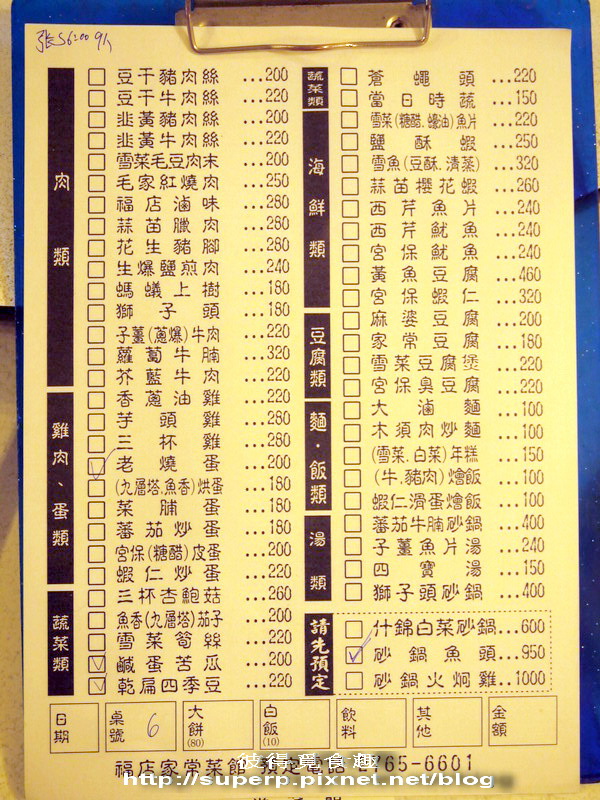 張56200 9人
肉類
豆干豬肉絲...200
豆干牛肉絲...220
韭黃豬肉絲...200
韭黃牛肉絲...220
雪菜毛豆肉末...200
毛家紅燒肉...250
福店滷味...260
蒜苗臘肉...280
花生豬腳...260
生爆鹽煎肉...240
螞蟻上樹...180
獅子頭...180
子薑(蔥爆)牛肉...220
蘿蔔牛腩...320
芥藍牛肉...220
雞肉、蛋類
香蔥油雞...220
芋頭雞...280
三杯雞...280
老燒蛋...200
(九層塔.魚香)烘蛋...180
菜脯蛋...180
蕃茄炒蛋...180
宮保(糖醋)皮蛋...200
蝦仁炒蛋...220
蔬菜類
三杯杏鮑菇...260
魚香(九層塔)茄子...200
雪菜筍絲...220
鹹蛋苦瓜...200
乾扁四季豆...220
蔬菜類
蒼蠅頭...220
當日時蔬...150
海鮮類
雪菜(糖醋.蠔油)魚片...220
鹽酥蝦...250
雪魚(豆酥.清蒸)...320
蒜苗櫻花蝦...260
西芹魚片...240
西芹魷魚...240
宮保魷魚...240
黃魚豆腐...460
宮保蝦仁...320
豆腐類
麻婆豆腐...200
家常豆腐...180
雪菜豆腐煲...220
宮保臭豆腐...220
麵.飯類
大滷麵...100
木須肉炒麵...100
(雪菜.白菜)年糕...150
(牛.豬肉)燴飯...100
蝦仁滑蛋燴飯...100
湯類
蕃茄牛腩砂鍋...400
子薑魚片湯...240
四寶湯...150
獅子頭砂鍋...400
請先預定
什錦白菜砂鍋...600
砂鍋魚頭...950
砂鍋火炯雞...1000
日期
桌號 6
大餅(80)
白飯(10)
飲料
其他
金額
福店家常菜館 預定電話 2765-6601
彼得覓食趣
http://superp.pixnet.net/blog